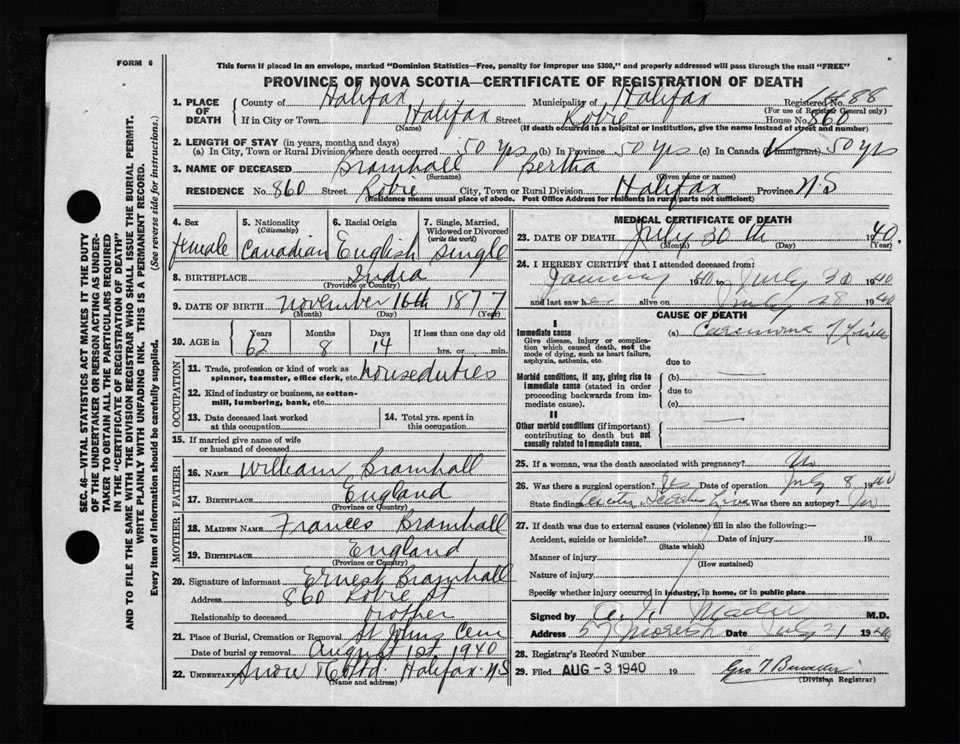 FORM 6
This form if placed in an envelope, marked "Dominion Statistics—Free, penalty for improper use $300," and properly addressed will pass through the mail "FREE"
PROVINCE OF NOVA SCOTIA—CERTIFICATE OF REGISTRATION OF DEATH
SEC. 46—VITAL STATISTICS ACT MAKES IT THE DUTY
OF THE UNDERTAKER OR PERSON ACTING AS UNDER-
TAKER TO OBTAIN ALL THE PARTICULARS REQUIRED
IN THE "CERTIFICATE OF REGISTRATION OF DEATH"
AND TO FILE THE SAME WITH THE DIVISION REGISTRAR WHO SHALL ISSUE THE BURIAL PERMIT.
WRITE PLAINLY WITH UNFADING INK. THIS IS A PERMANENT RECORD.
Every item of Information should be carefully supplied. (See reverse side for instructions.)
1. PLACE OF DEATH
County of Halifax Municipality of Halifax Registered No. 1488
(For use of Registrar General only)
If in City or Town Halifax Street Robie House No. 860
(Name) (If death occurred in a hospital or institution, give the name instead of street and number)
2. LENGTH OF STAY (in years, months and days)
(a) In City, Town or Rural Division where death occurred 50 yrs (b) In Province 50 yrs (c) In Canada (if immigrant) 50 yrs
3. NAME OF DECEASED Bramhall Bertha
(Surname) (Given name or names)
RESIDENCE No. 860 Street Robie City, Town or Rural Division Halifax Province N.S
(Residence means usual place of abode. Post Office Address for residents in rural parts not sufficient)
4. Sex female
5. Nationality (Citizenship) Canadian
6. Racial Origin English
7. Single, Married, Widowed or Divorced (write the word) Single
8. BIRTHPLACE India
(Province or Country)
9. DATE OF BIRTH November 16th 1877
(Month) (Day) (Year)
10. AGE in Years 62 Months 8 Days 14 If less than one day old hrs. or min.
OCCUPATION
11. Trade, profession or kind of work as spinner, teamster, office clerk, etc. houseduties
12. Kind of industry or business, as cotton-mill, lumbering, bank, etc.
13. Date deceased last worked at this occupation
14. Total yrs. spent in this occupation
15. If married give name of wife or husband of deceased
FATHER
16. NAME William Bramhall
17. BIRTHPLACE England
(Province or Country)
MOTHER
18. MAIDEN NAME Frances Bramhall
19. BIRTHPLACE England
(Province or Country)
20. Signature of informant Ernest Bramhall
Address 860 Robie St
Relationship to deceased brother
21. Place of Burial, Cremation or Removal St Johns Cem
Date of burial or removal August 1st 1940
22. UNDERTAKER Snow & Co Ltd. Halifax. N.S
(Name and address)
MEDICAL CERTIFICATE OF DEATH
23. DATE OF DEATH July 30th 1940.
(Month) (Day) (Year)
24. I HEREBY CERTIFY that I attended deceased from:
January 1940 to July 30 1940
and last saw her alive on July 28 1940
CAUSE OF DEATH
I
Immediate cause
Give disease, injury or complication which caused death, not the mode of dying, such as heart failure, asphyxia, asthenia, etc.
(a) Carcinoma of Liver
due to
Morbid conditions, if any, giving rise to immediate cause (stated in order proceeding backwards from immediate cause).
(b)
due to
(c)
II
Other morbid conditions (if important) contributing to death but not causally related to immediate cause.
25. If a woman, was the death associated with pregnancy? No
26. Was there a surgical operation? Date of operation July 8 1940
State findings Liver Was there an autopsy? No
27. If death was due to external causes (violence) fill in also the following:—
Accident, suicide or homicide? Date of injury 19
(State which)
Manner of injury
(How sustained)
Nature of injury
Specify whether injury occurred in industry, in home, or in public place
Signed by Mader M.D.
Address 57 Morris St Date July 31 1940
28. Registrar's Record Number
29. Filed AUG -3 1940 19
(Division Registrar)